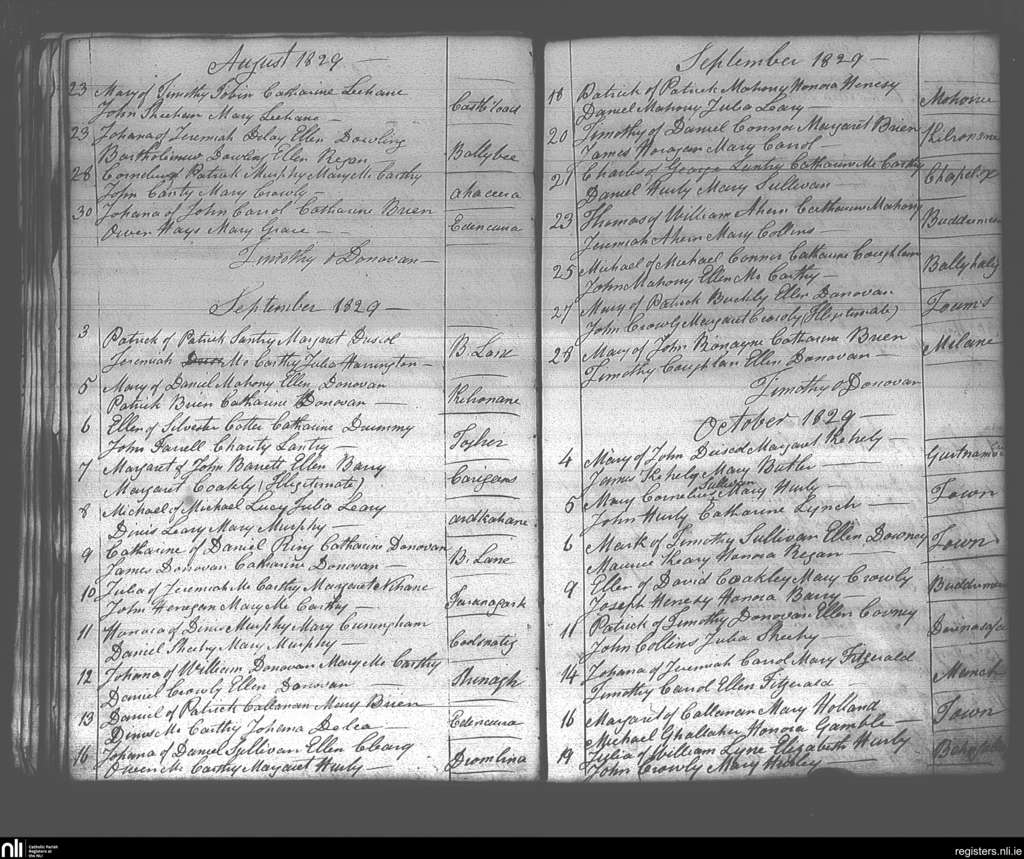 August 1829
23 Mary of Timothy Tobin Catharine Leehane
John Sheehan Mary Leehane Castle
23 Johana of Jeremiah Delay Ellen Dowling
Bartholimew Dowling Ellen Regan Ballybee
28 Cornelius Patrick Murphy Mary Mc Carthy
John Carty Mary Crowly ahaceera
30 Johana of John Carrol Catharine Brien
Owen Hays Mary Grace Edencura
Timothy O Donovan
September 1829
3 Patrick of Patrick Santry Margaret Driscol
Jeremiah Mc Carthy Julia Harrington B. Lane
5 Mary of Daniel Mahony Ellen Donovan
Patrick Brien Catharine Donovan Kilronane
6 Ellen of Silvester Cotter Catharine Drummy
John Farrell Charity Santry Togher
7 Margaret of John Barrett Ellen Barry
Margaret Coakly (Illigitimate)
8 Michael of Michael Lucy Juba Leary
Dinis Leary Mary Murphy ardkahane
9 Catharine of Daniel Ring Catharine Donovan
James Donovan Catharine Donovan B. Lane
10 Juba of Jeremiah Mc Carthy Margaret
John Horogan Mary Mc Carthy
11 Honora of Dinis Murphy Mary Cuningham
Daniel Sheehy Mary Murphy
12 Johana of William Donovan Mary Mc Carthy
Daniel Crowly Ellen Donovan Shinagh
13 Daniel of Patrick Callanan Mary Brien
Dinis Mc Carthy Johana Delea Edencura
16 Johana of Daniel Sullivan Ellen Cleary
Owen Mc Carthy Margaret Hurly Dromlina
September 1829
18 Patrick of Patrick Mahony Honora Henesy
Daniel Mahony Juba Leary Mohona
20 Timothy of Daniel Connor Margaret Brien
James Horagan Mary Carrol Kilronane
21 Charles of George Santry Catharine Mc Carthy
Daniel Hurly Mary Sullivan
23 Thomas of William Ahern Catharine Mahony
Jeremiah Ahern Mary Collins
25 Michael of Michael Connor Catharine Coughlan
John Mahony Ellen Mc Carthy Ballyhalig
27 Mary of Patrick Buckly Ellen Donovan
John Crowly Margaret Crowly (Illigitimate)
28 Mary of John Ronayne Catharine Brien
Timothy Coughlan Ellen Donovan Milane
Timothy O Donovan
October 1829
4 Mary of John Driscol Margaret Kehely
James Kehely Mary Butler
5 Mary Cornelius Sullivan Mary Hurly
John Hurly Catharine Lynch Town
6 Mark of Timothy Sullivan Ellen Downey
Maurice Sheary Honora Regan Town
9 Ellen of David Coakley Mary Crowly
Joseph Henesy Honora Barry
11 Patrick of Timothy Donovan Ellen Cooney
John Collins Julia Sheehy
14 Johana of Jeremiah Carrol Mary Fitzgerald
Timothy Carrol Ellen Fitzgerald
16 Margaret of Callanan Mary Holland
Michael Ghallaher Honora Gamble Town
19 Julia of William Lyne Elizabeth Hurly
John Crowly Mary Hurley
nli Catholic Parish Registers at the NLI
registers.nli.ie